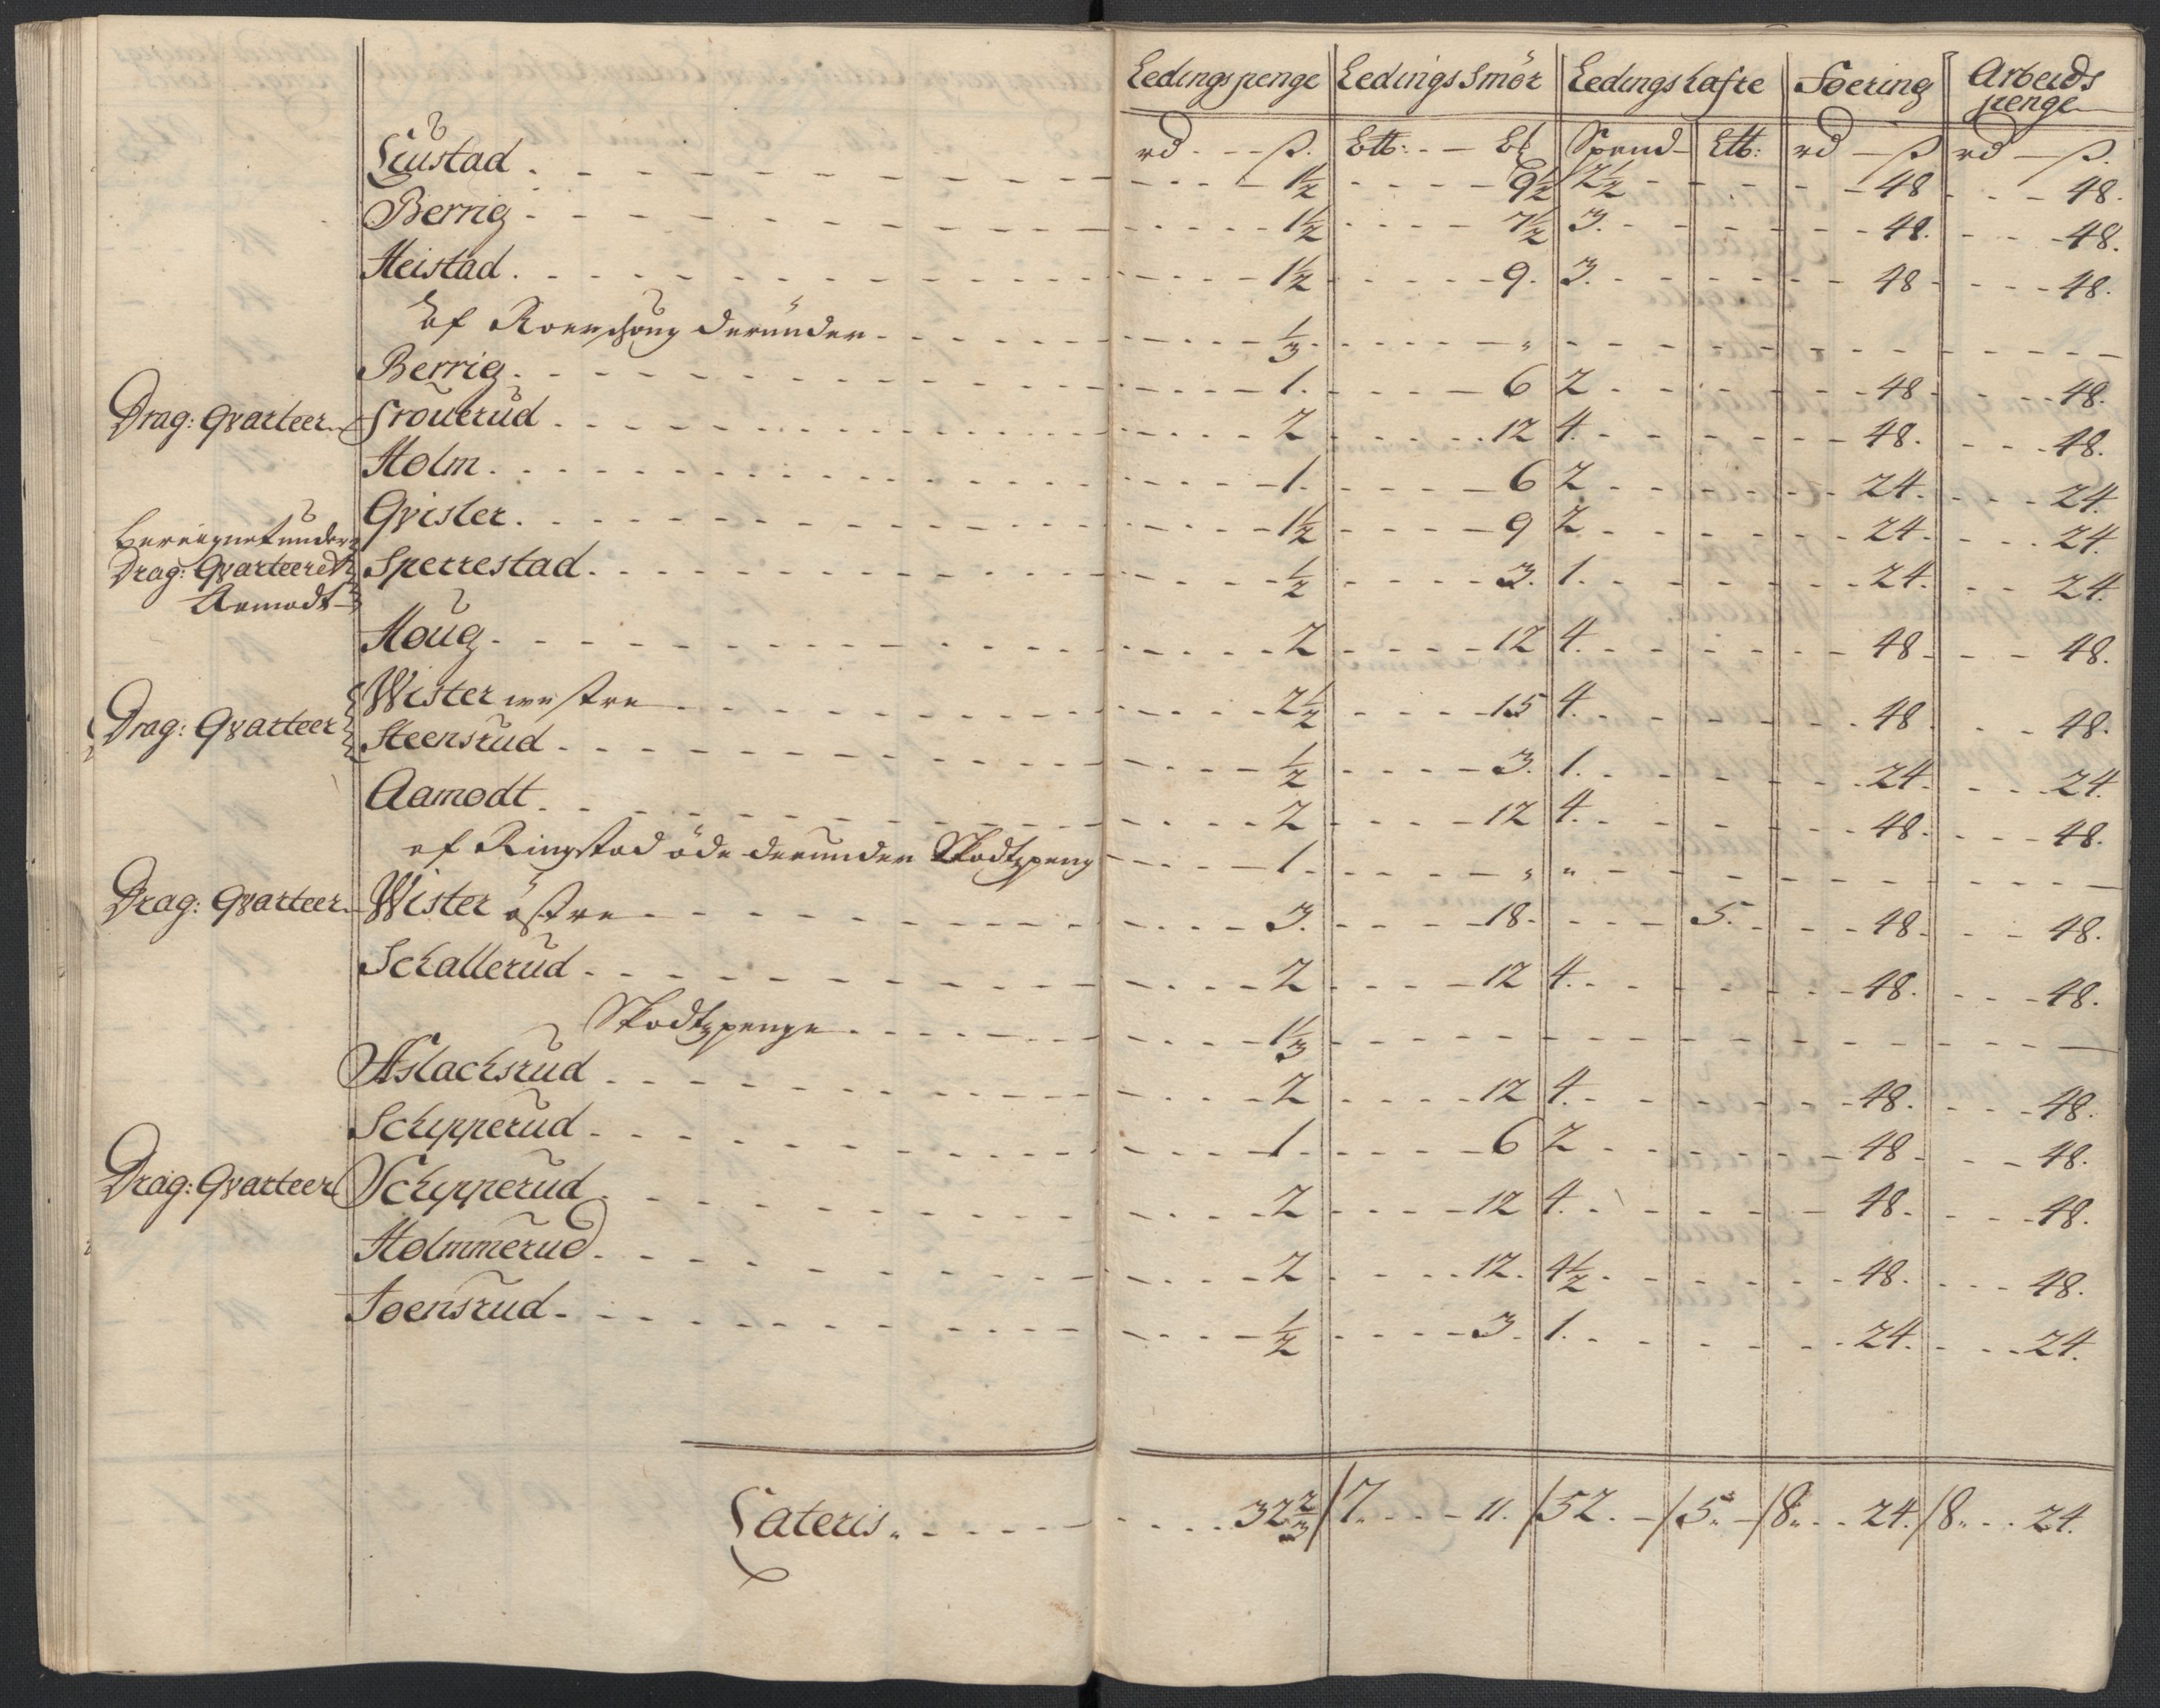 Ledingspenge Ledings Smör Ledingshafre Foering Arbeids penge
rd ß. Ett: Spand Ett: rd ß rd ß.
Liustad 1½ 9½ 2½ 48 48.
Berrig 1½ 7½ 3. 48. 48.
Heistad 1½ 9. 3. 48 48.
af derunder ⅓ "
Berrig 1. 6 2 48 48.
Drag: Qvarteer Frouerud 2 12 4. 48. 48.
Holm 1. 6 2 24. 24.
Qvister 1½ 9 2 24. 24.
Bereignet under
Drag: Qvarteeret Sperrestad ½ 3. 1. 24. 24.
Aamodt
Houg 2 12 4. 48 48.
Drag: Qvarteer Wister westre 2½ 15 4. 48 48.
Steensrud ½ 3. 1. 24. 24.
Aamodt 2 12 4. 48. 48.
af Ringstad öde derunder Skodtzpeng 1. " "
Drag: Qvarteer Wister östre 3. 18. 5. 48. 48.
Schallerud 2 12 4. 48. 48.
Skodtzpenge 1⅓
Aslachsrud 2 12 4. 48. 48.
Schypperud 1 6 2 48 48.
Drag: Qvarteer Schypperud 2 12 4. 48. 48.
Holmmerud 2 12. 4½ 48. 48.
Toensrud ½ 3. 1. 24. 24.
Lateris. 32⅔ / 7. 11. / 52. / 5. / 8. 24. / 8. 24.